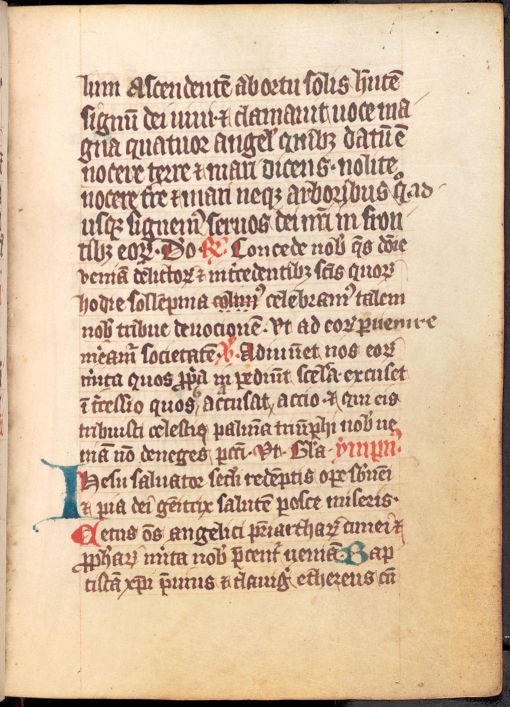 lium Ascendentē ab ortu solis hn̄tē
signū dei viui ⁊ clamauit uoce ma
gna quatuor angel' quibꝫ datū ē
nocere terre ⁊ mari dicens · nolite
nocere tr̄e ⁊ mari neqꝫ arboribus q̄ad
usqꝫ signem⁹ seruos dei nr̄i in fron
tibꝫ eoꝝ · Do · ꝶ Concede nob̄ q̄s dn̄e
veniā delictoꝝ ⁊ int̄cedentibꝫ sc̄is quoꝝ
hodie sollempnia colim⁹ celebram⁹ talem
nob̄ tribue deuocionē · Vt ad eoꝝ ꝑuenire
m̄eam⁹ societatē ꝟ Adiuuēt nos eoꝝ
m̄ita quos ꝓp̄a īpediūt scel̄a · excuset
īt̄cessio quos accusat accio · ⁊ qui eis
tribuisti celestis palmā triūphi nob̄ ue
niā nō deneges pcc̄i · Vt · Gl̄a · ympn⁹
Ihesu saluator secl̄i redēptis ope sb̄ueni
⁊ pia dei genitrix salutē posce miseris ·
Cetus om̄s angelici pr̄iarchaꝝ cunei ⁊
ꝓphaꝝ m̄ita nob̄ p̄cent̄ ueniā · Bap
tista xp̄i p̄uius ⁊ clauig̓ ethereus cū